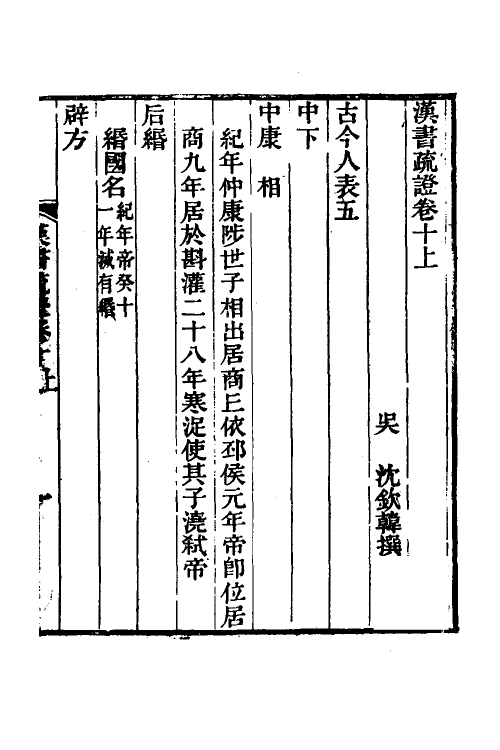 漢書疏證卷十上
吳　沈欽韓撰
古今人表五
中下
中康　相
紀年仲康陟世子相出居商丘依邳侯元年帝卽位居
商九年居於斟灌二十八年寒浞使其子澆弑帝
后緡
緡國名紀年帝癸十一年滅有緡
辟方
漢書疏證卷十上
一